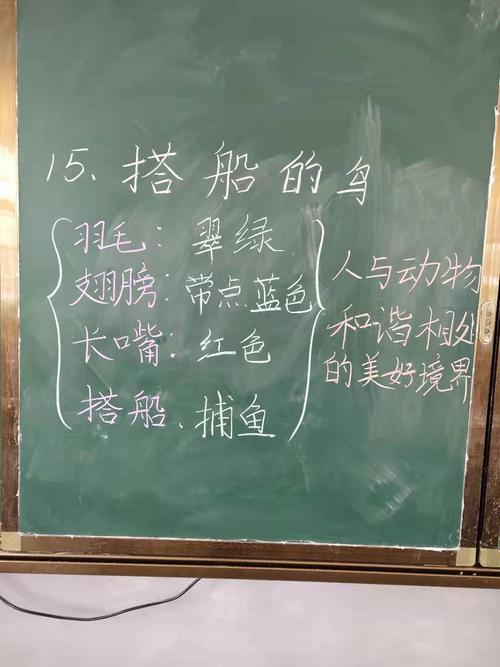 15、搭船的鸟
羽毛：翠绿
翅膀：带点蓝色
长嘴：红色
搭船、捕鱼
人与动物
和谐相处
的美好境界